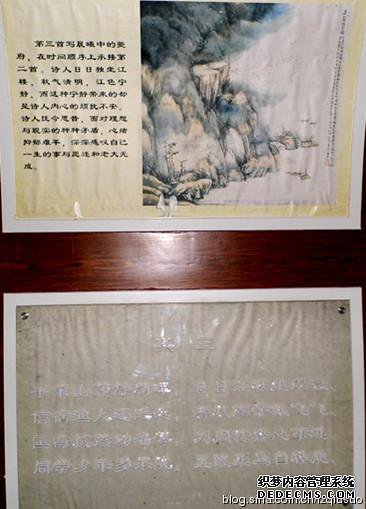 第三首写晨曦中的夔
府，在时间顺序上承接第
二首。诗人日日独坐江
楼，秋气清明，江色宁
静，而这种宁静带来的却
是诗人内心的烦扰不安。
诗人抚今思昔，面对理想
与现实的种种矛盾，心绪
抑郁难平，深深感叹自己
一生的事与愿违和老大无
成。
其三
千家山郭静朝晖，日日江楼坐翠微。
信宿渔人还泛泛，清秋燕子故飞飞。
匡衡抗疏功名薄，刘向传经心事违。
同学少年多不贱，五陵裘马自轻肥。
织梦内容管理系统
DEDECMS.COM